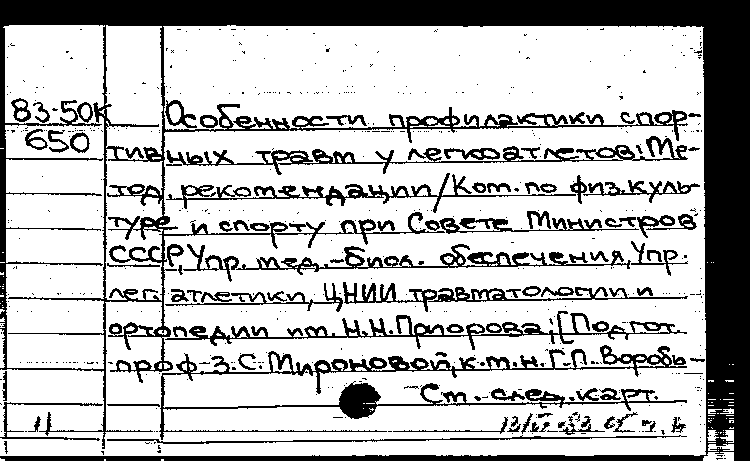 83-50К Особенности профилактики спор-
650 тивных травм у легкоатлетов: Ме-
тод. рекомендации/Ком. по физ. куль-
туре и спорту при Совете Министров
СССР, Упр. мед.-биол. обеспечения, Упр.
лег. атлетики, ЦНИИ травматологии и
ортопедии им. Н.Н.Приорова; [Подгот.
проф. З.С.Мироновой, к.м.н. Г.П.Воробь-
Ст. след. карт.
11